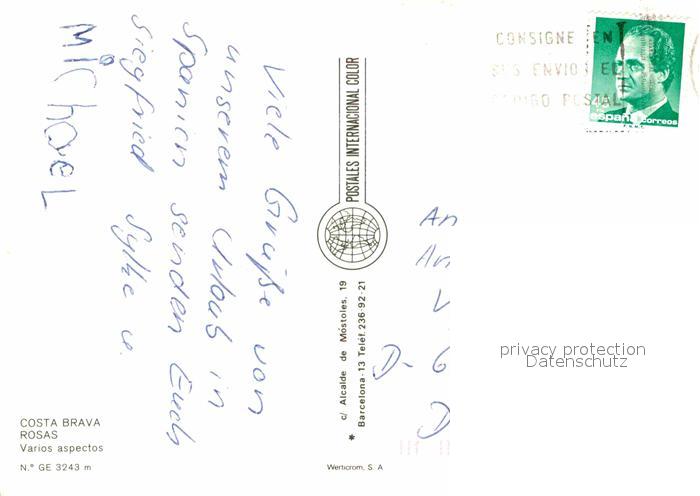 Viele Grüße von
unserem Urlaub in
Spanien senden Euch
Siegfried Sylke u.
MICHAEL
COSTA BRAVA
ROSAS
Varios aspectos
N.° GE 3243 m
POSTALES INTERNACIONAL COLOR
c/ Alcalde de Móstoles, 19
Barcelona-13 Teléf. 236-92-21
Werticrom, S. A
CONSIGNE EN
SUS ENVIOS EL
CODIGO POSTAL
españa correos
An
V
G
D-
D
privacy protection
Datenschutz